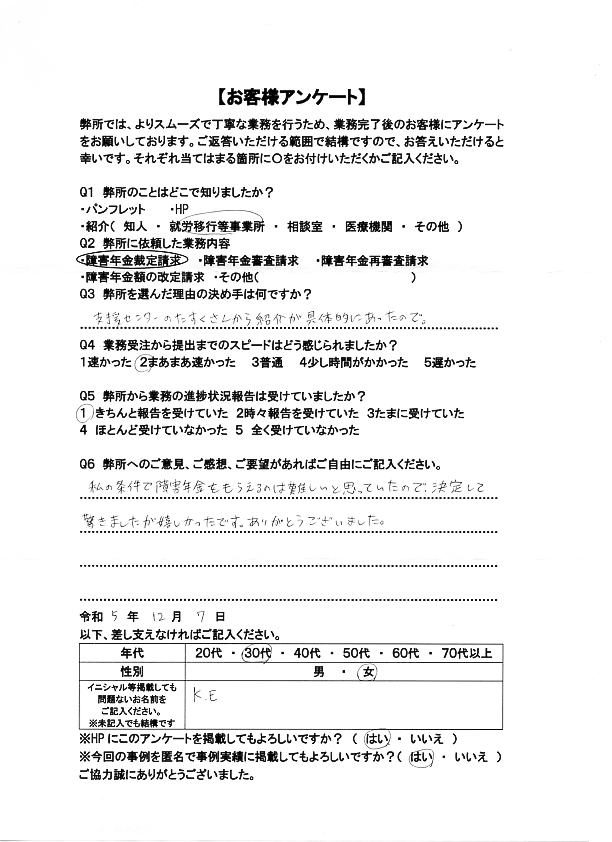 【お客様アンケート】
弊所では、よりスムーズで丁寧な業務を行うため、業務完了後のお客様にアンケート
をお願いしております。ご返答いただける範囲で結構ですので、お答えいただけると
幸いです。それぞれ当てはまる箇所に○をお付けいただくかご記入ください。
Q1 弊所のことはどこで知りましたか?
・パンフレット ・HP
・紹介( 知人 ・ 就労移行等事業所 ・ 相談室 ・ 医療機関 ・ その他 )
Q2 弊所に依頼した業務内容
・障害年金裁定請求 ・障害年金審査請求 ・障害年金再審査請求
・障害年金額の改定請求 ・その他( )
Q3 弊所を選んだ理由の決め手は何ですか?
支援センターのたすくさんから紹介が具体的にあったので。
Q4 業務受注から提出までのスピードはどう感じられましたか?
1速かった 2まあまあ速かった 3普通 4少し時間がかかった 5遅かった
Q5 弊所から業務の進捗状況報告は受けていましたか?
1 きちんと報告を受けていた 2時々報告を受けていた 3たまに受けていた
4 ほとんど受けていなかった 5 全く受けていなかった
Q6 弊所へのご意見、ご感想、ご要望があればご自由にご記入ください。
私の条件で障害年金をもらえるのは難しいと思っていたので、決定して
驚きましたが嬉しかったです。ありがとうございました。
令和 5 年 12 月 7 日
以下、差し支えなければご記入ください。
年代 20代 ・ 30代 ・ 40代 ・ 50代 ・ 60代 ・ 70代以上
性別 男 ・ 女
イニシャル等掲載しても
問題ないお名前を
ご記入ください。
※未記入でも結構です
K.E
※HPにこのアンケートを掲載してもよろしいですか? ( はい ・ いいえ )
※今回の事例を匿名で事例実績に掲載してもよろしいですか?( はい ・ いいえ )
ご協力誠にありがとうございました。